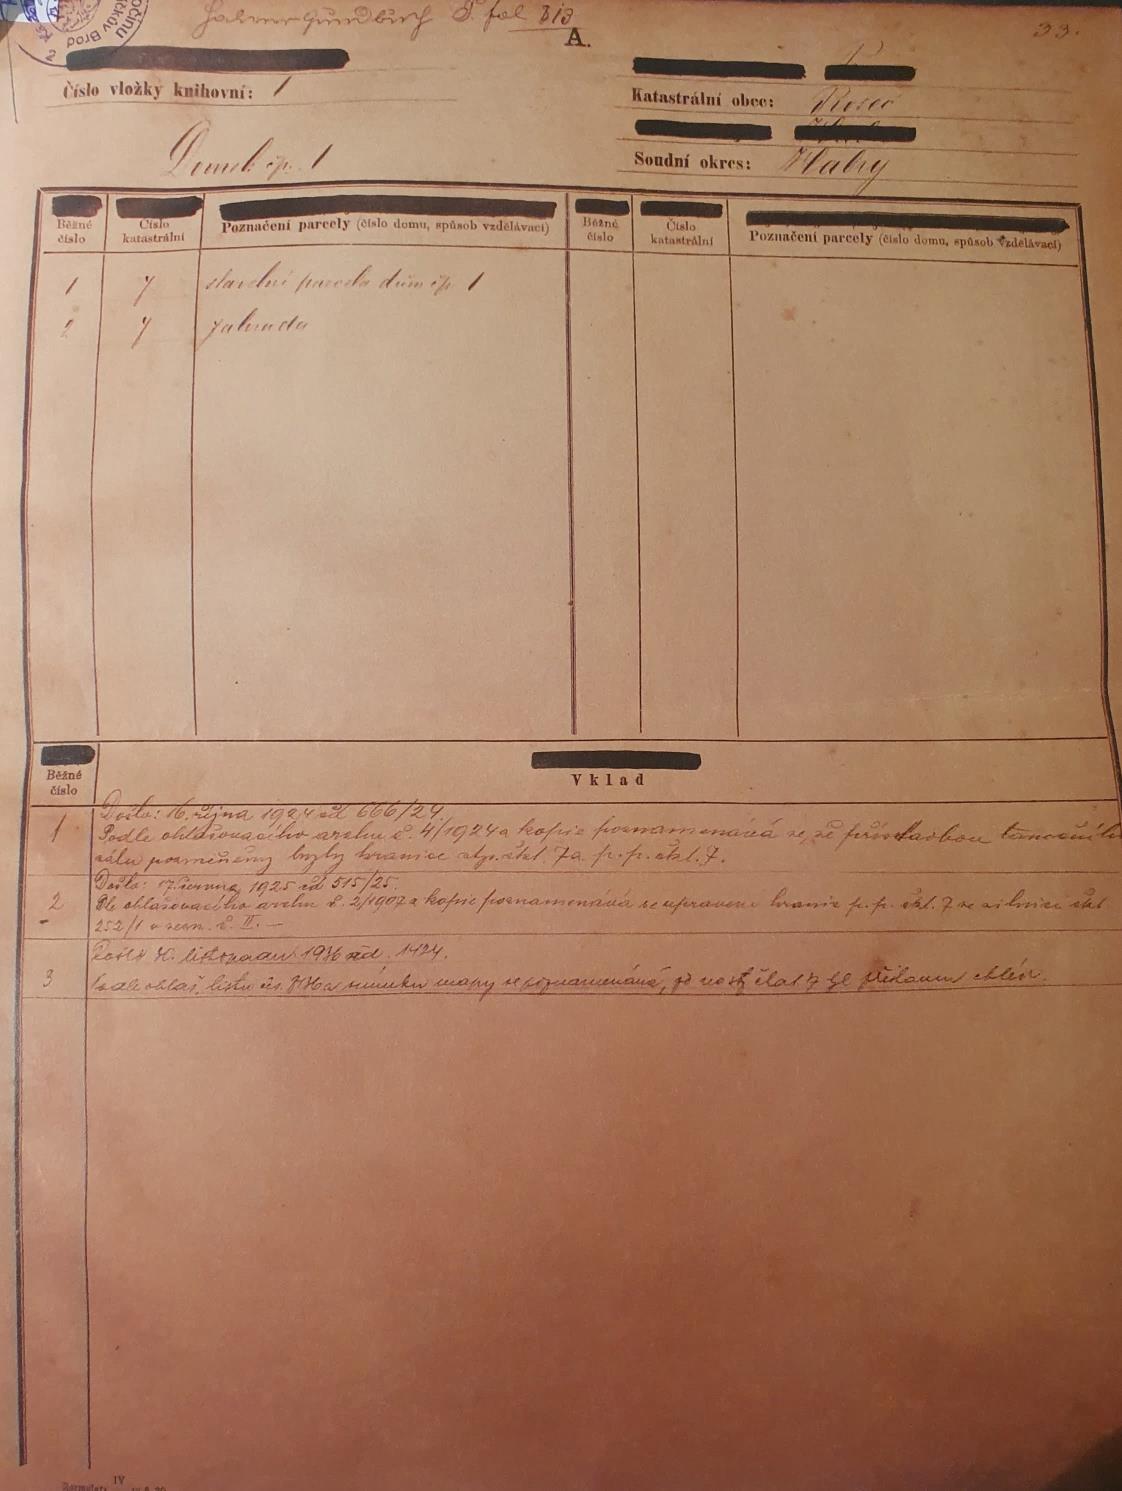 Grundbuch T. fol 313
33.
A.
Číslo vložky knihovní: 1
Katastrální obec:
Soudní okres: Habry
Domek čp. 1
Běžné číslo
Číslo katastrální
Poznačení parcely (číslo domu, spůsob vzdělávací)
Běžné číslo
Číslo katastrální
Poznačení parcely (číslo domu, spůsob vzdělávací)
1 7 stavební parcela dům čp. 1
2 7 zahrada
Běžné číslo
Vklad
Došlo: 16. října 1924 čd 666/24.
1 Podle ohlašovacího archu č. 4/1924 a kopie poznamenává se, že přístavbou tanečního
sálu pozměněny byly hranice stp. čkt. 7 a p. p. čkt. 7.
Došlo: 17. června 1925 čd 515/25.
2 Dle ohlašovacího archu č. 2/1907 a kopie poznamenává se upravení hranic p. p. čkt. 7 se silnicí čkt
252/1 v sezn. č. II. —
listopadu 1936 čd. 1424.
3 listu čís. a snímku mapy se poznamenává, že chlév.
IV